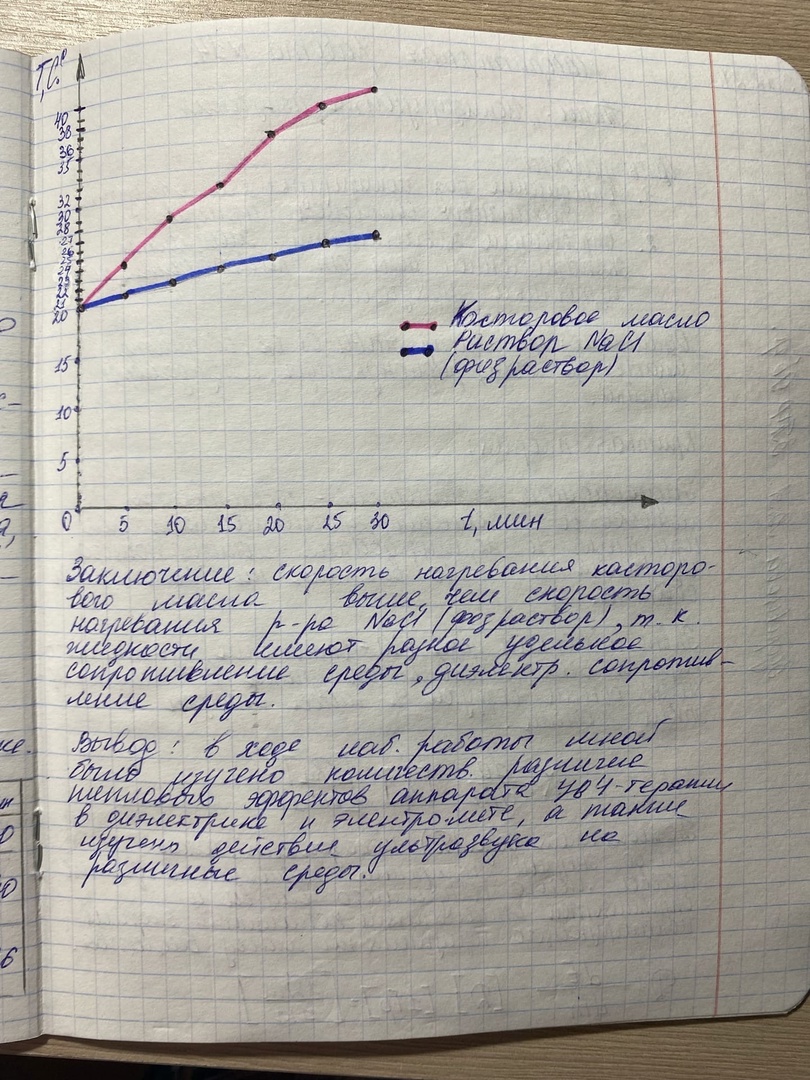 T,C°
40
38
36
35
32
30
28
27
26
25
24
23
22
21
20
15
10
5
0 5 10 15 20 25 30 t, мин
Касторовое масло
Раствор NaCl
(физраствор)
Заключение: скорость нагревания касторо-
вого масла выше, чем скорость
нагревания р-ра NaCl (физраствор), т. к.
жидкости имеют разное удельное
сопротивление среды, диэлектр. сопротив-
ление среды.
Вывод: в ходе лаб. работы мной
было изучено количеств. различие
тепловых эффектов аппарата УВЧ-терапии
в диэлектрике и электролите, а также
изучено действие ультразвука на
различные среды.